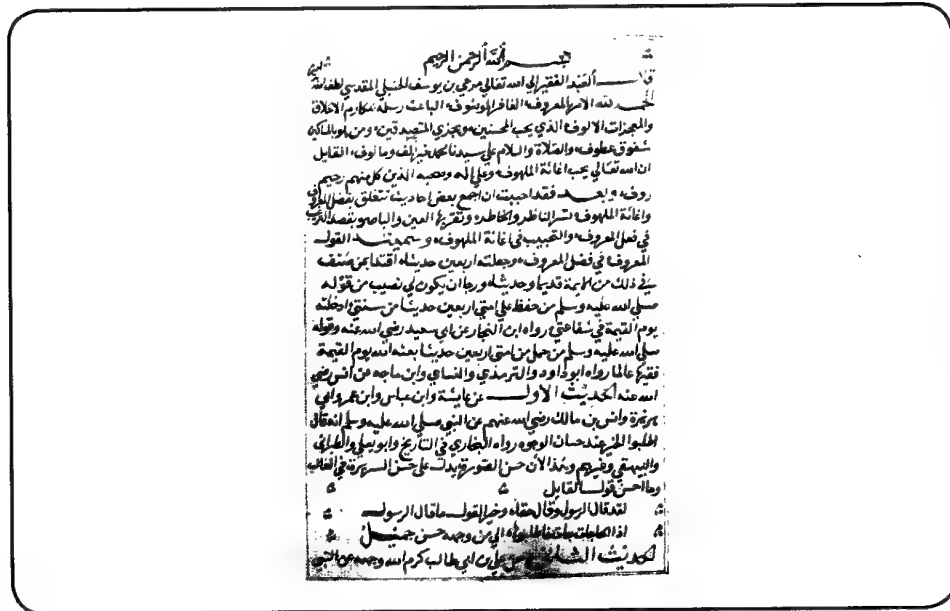 بسم الله الرحمن الرحيم
قال العبد الفقير الى الله تعالى مرعي بن يوسف الحنبلي المقدسي لطف الله
الحمد لله الامر بالمعروف الغافر الموصوف الباعث رسله بمكارم الاخلاق
والمعجزات الالوف الذي يحب المحسنين ويجزي المتصدقين ومن هو بالمساكين
شفوق عطوف والصلاة والسلام علي سيدنا محمد خير الف ومالوف القايل
ان الله تعالي يحب اغاثة الملهوف وعلي اله وصحبه الذين كل منهم رحيم
روف وبعد فقد احببت ان اجمع بعض احاديث تتعلق بفضل المعروف
واغاثة الملهوف تسر الناظر والخاطر وتقر بها العين والباصر بقصد الترغيب
في فعل المعروف والتحبيب في اغاثة الملهوف وسميته القول
المعروف في فضل المعروف وجعلته اربعين حديثا اقتفا بمن صنف
في ذلك من الايمة قديما وحديثا ورجا ان يكون لي نصيب من قوله
صلي الله عليه وسلم من حفظ علي امتي اربعين حديثا من سنتي ادخلته
يوم القيمة في شفاعتي رواه ابن النجار عن ابي سعيد رضي الله عنه وقوله
صلي الله عليه وسلم من حمل من امتي اربعين حديثا بعثه الله يوم القيمة
فقيها عالما رواه ابو داود والترمذي والنساي وابن ماجه عن انس رضي
الله عنه الحديث الاول عن عايشة وابن عباس وابن عمر وابي
هريرة وانس بن مالك رضي الله عنهم عن النبي صلي الله عليه وسلم انه قال
اطلبوا الخير عند حسان الوجوه رواه البخاري في التاريخ وابو يعلي والطبراني
والبيهقي وغيرهم وهذا لان حسن الصورة يدل علي حسن السريرة في الغالب
وما احسن قول القايل
لقد قال الرسول وقال حقا وخير القول ما قال الرسول
اذا الحاجات جات فاطلبوها الي من وجهه حسن جميل
الحديث الثاني عن علي بن ابي طالب كرم الله وجهه عن النبي